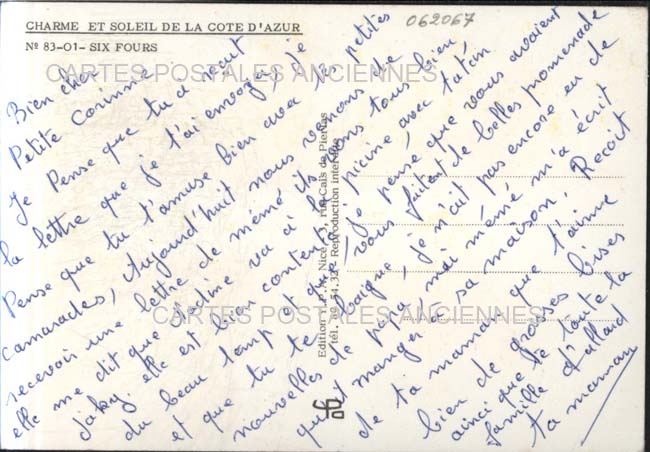 CHARME ET SOLEIL DE LA COTE D'AZUR
Nº 83-01- SIX FOURS
062067
CARTES POSTALES ANCIENNES
Bien cher
Petite Corinne
Je Pense que tu a recut
la lettre que je t'ai envoyer, je
Pense que tu t'amuse bien avec tes petites
camarades, Aujourd'hui nous venons de
recevoir une lettre de mémé ils vons tous bien
elle me dit que va à la picine avec tatan
jaky. elle est bien contente. Je pense que vous avaient
du beau temp et que vous faitent de belles promenade
et que tu te baigne, je n'ait pas encore eu de
nouvelles de papa, mai mémé m'a écrit
qu'il mangé à sa maison. Recoit
de ta maman que t'aime
bien de grosses bises
ainci que de toute la
famille Vallaud
ta maman
Edition Nice, rue Cals de Pierlas
tél. 89.54.32 Reproduction interdite
CARTES POSTALES ANCIENNES